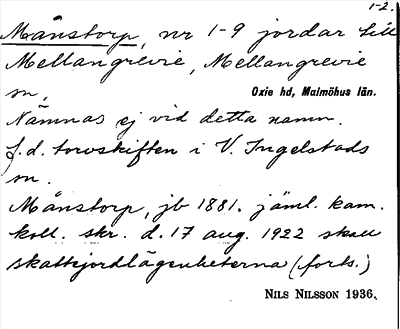 1-2.
Månstorp, nr 1-9 jordar till
Mellangrevie, Mellangrevie
sn,
Oxie hd, Malmöhus län.
Nämnas ej vid detta namn.
F.d. torvskiften i V. Ingelstads
sn.
Månstorp, jb 1881. jäml. kam.
koll. skr. d. 17 aug. 1922 skall
skattejordlägenheterna (forts.)
NILS NILSSON 1936.